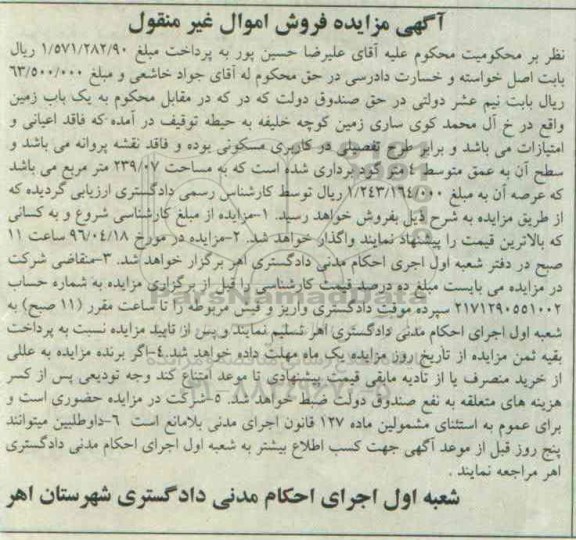 آگهی مزایده فروش اموال غیر منقول
نظر بر محکومیت محکوم علیه آقای علیرضا حسین پور به پرداخت مبلغ ۱/۵۷۱/۲۸۲/۹۰ ریال
بابت اصل خواسته و خسارت دادرسی در حق محکوم له آقای جواد خاشعی و مبلغ ۶۳/۵۰۰/۰۰۰
ریال بابت نیم عشر دولتی در حق صندوق دولت که در که در مقابل محکوم به یک باب زمین
واقع در خ آل محمد کوی ساری زمین کوچه خلیفه به حیطه توقیف در آمده که فاقد اعیانی و
امتیازات می باشد و برابر طرح تفصیلی در کاربری مسکونی بوده و فاقد نقشه پروانه می باشد و
سطح آن به عمق متوسط ٤ متر گود برداری شده است که به مساحت ۲۳۹/۰۷ متر مربع می باشد
که عرصه آن به مبلغ ۱/۲۴۳/۱۶۴/۰۰۰ ریال توسط کارشناس رسمی دادگستری ارزیابی گردیده که
از طریق مزایده به شرح ذیل بفروش خواهد رسید. ۱-مزایده از مبلغ کارشناسی شروع و به کسانی
که بالاترین قیمت را پیشنهاد نمایند واگذار خواهد شد. ۲-مزایده در مورخ ۹۶/۰۴/۱۸ ساعت ۱۱
صبح در دفتر شعبه اول اجری احکام مدنی دادگستری اهر برگزار خواهد شد. ۳-متقاضی شرکت
در مزایده می بایست مبلغ ده درصد قیمت کارشناسی را قبل از برگزاری مزایده به شماره حساب
۲۱۷۱۲۹۰۵۵۱۰۰۲ سپرده موقت دادگستری واریز و فیش مربوطه را تا ساعت مقرر (۱۱ صبح) به
شعبه اول اجرای احکام مدنی دادگستری اهر تسلیم نمایند و پس از تایید مزایده نسبت به پرداخت
بقیه ثمن مزایده از تاریخ روز مزایده یک ماه مهلت داده خواهد شد.٤-اگر برنده مزایده به عللی
از خرید منصرف یا از تادیه مابقی قیمت پیشنهادی تا موعد امتناع کند وجه تودیعی پس از کسر
هزینه های متعلقه به نفع صندوق دولت ضبط خواهد شد. ۵-شرکت در مزایده حضوری است و
برای عموم به استثنای مشمولین ماده ۱۲۷ قانون اجرای مدنی بلامانع است ۶-داوطلبین میتوانند
پنج روز قبل از موعد آگهی جهت کسب اطلاع بیشتر به شعبه اول اجرای احکام مدنی دادگستری
اهر مراجعه نمایند .
شعبه اول اجرای احکام مدنی دادگستری شهرستان اهر
ParsNamadData